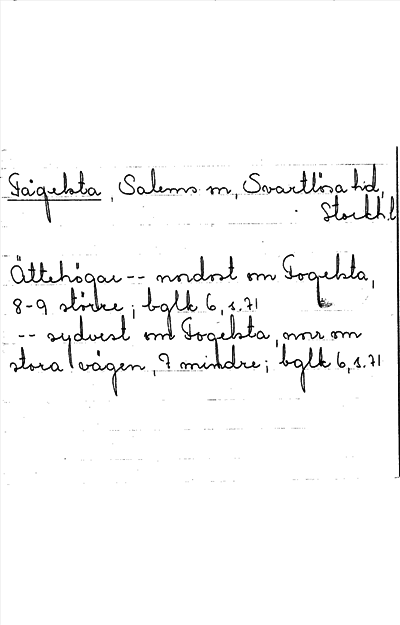 Fågelsta, Salems sn, Svartlösa hd,
Stockh.l
Ättehögar -- nordost om Fogelsta,
8-9 större; bglk 6, s.71
-- sydvest om Fogelsta, norr om
stora vägen, 7 mindre; bglk 6, s.71